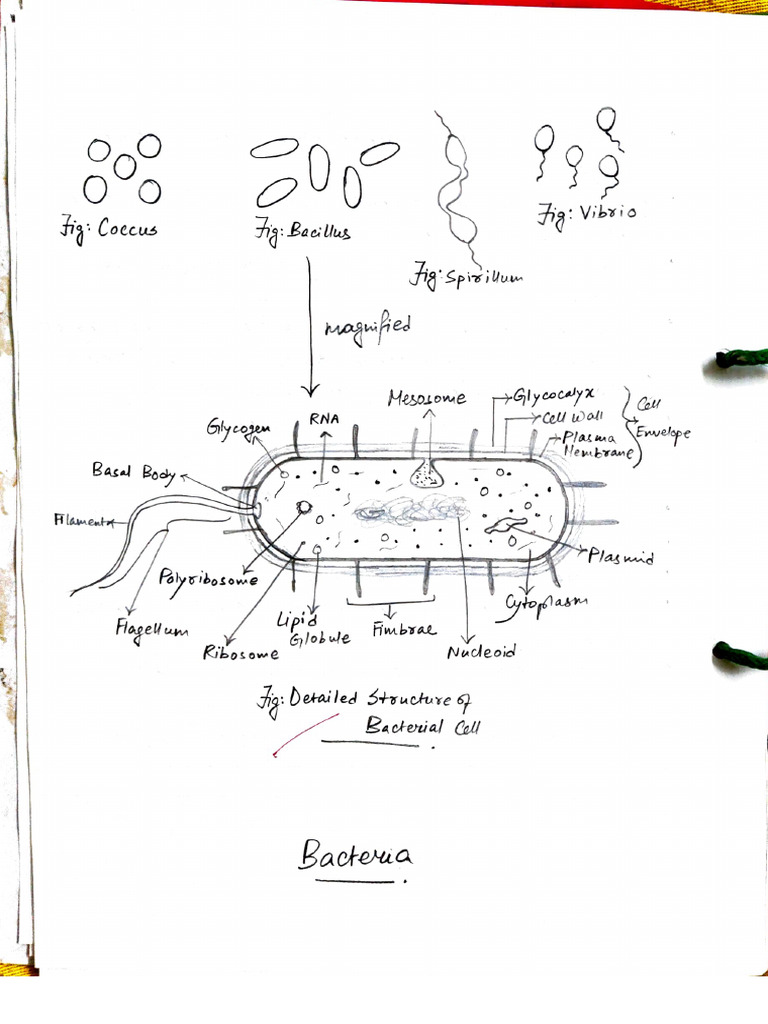 Fig: Coccus
Fig: Bacillus
Fig: Spirillum
Fig: Vibrio
magnified
Glycogen
RNA
Mesosome
Glycocalyx
Cell Wall
Plasma
Membrane
Cell
Envelope
Basal Body
Filament
Polyribosome
Flagellum
Ribosome
Lipid
Globule
Fimbrae
Nucleoid
Cytoplasm
Plasmid
Fig: Detailed Structure of
Bacterial Cell
Bacteria